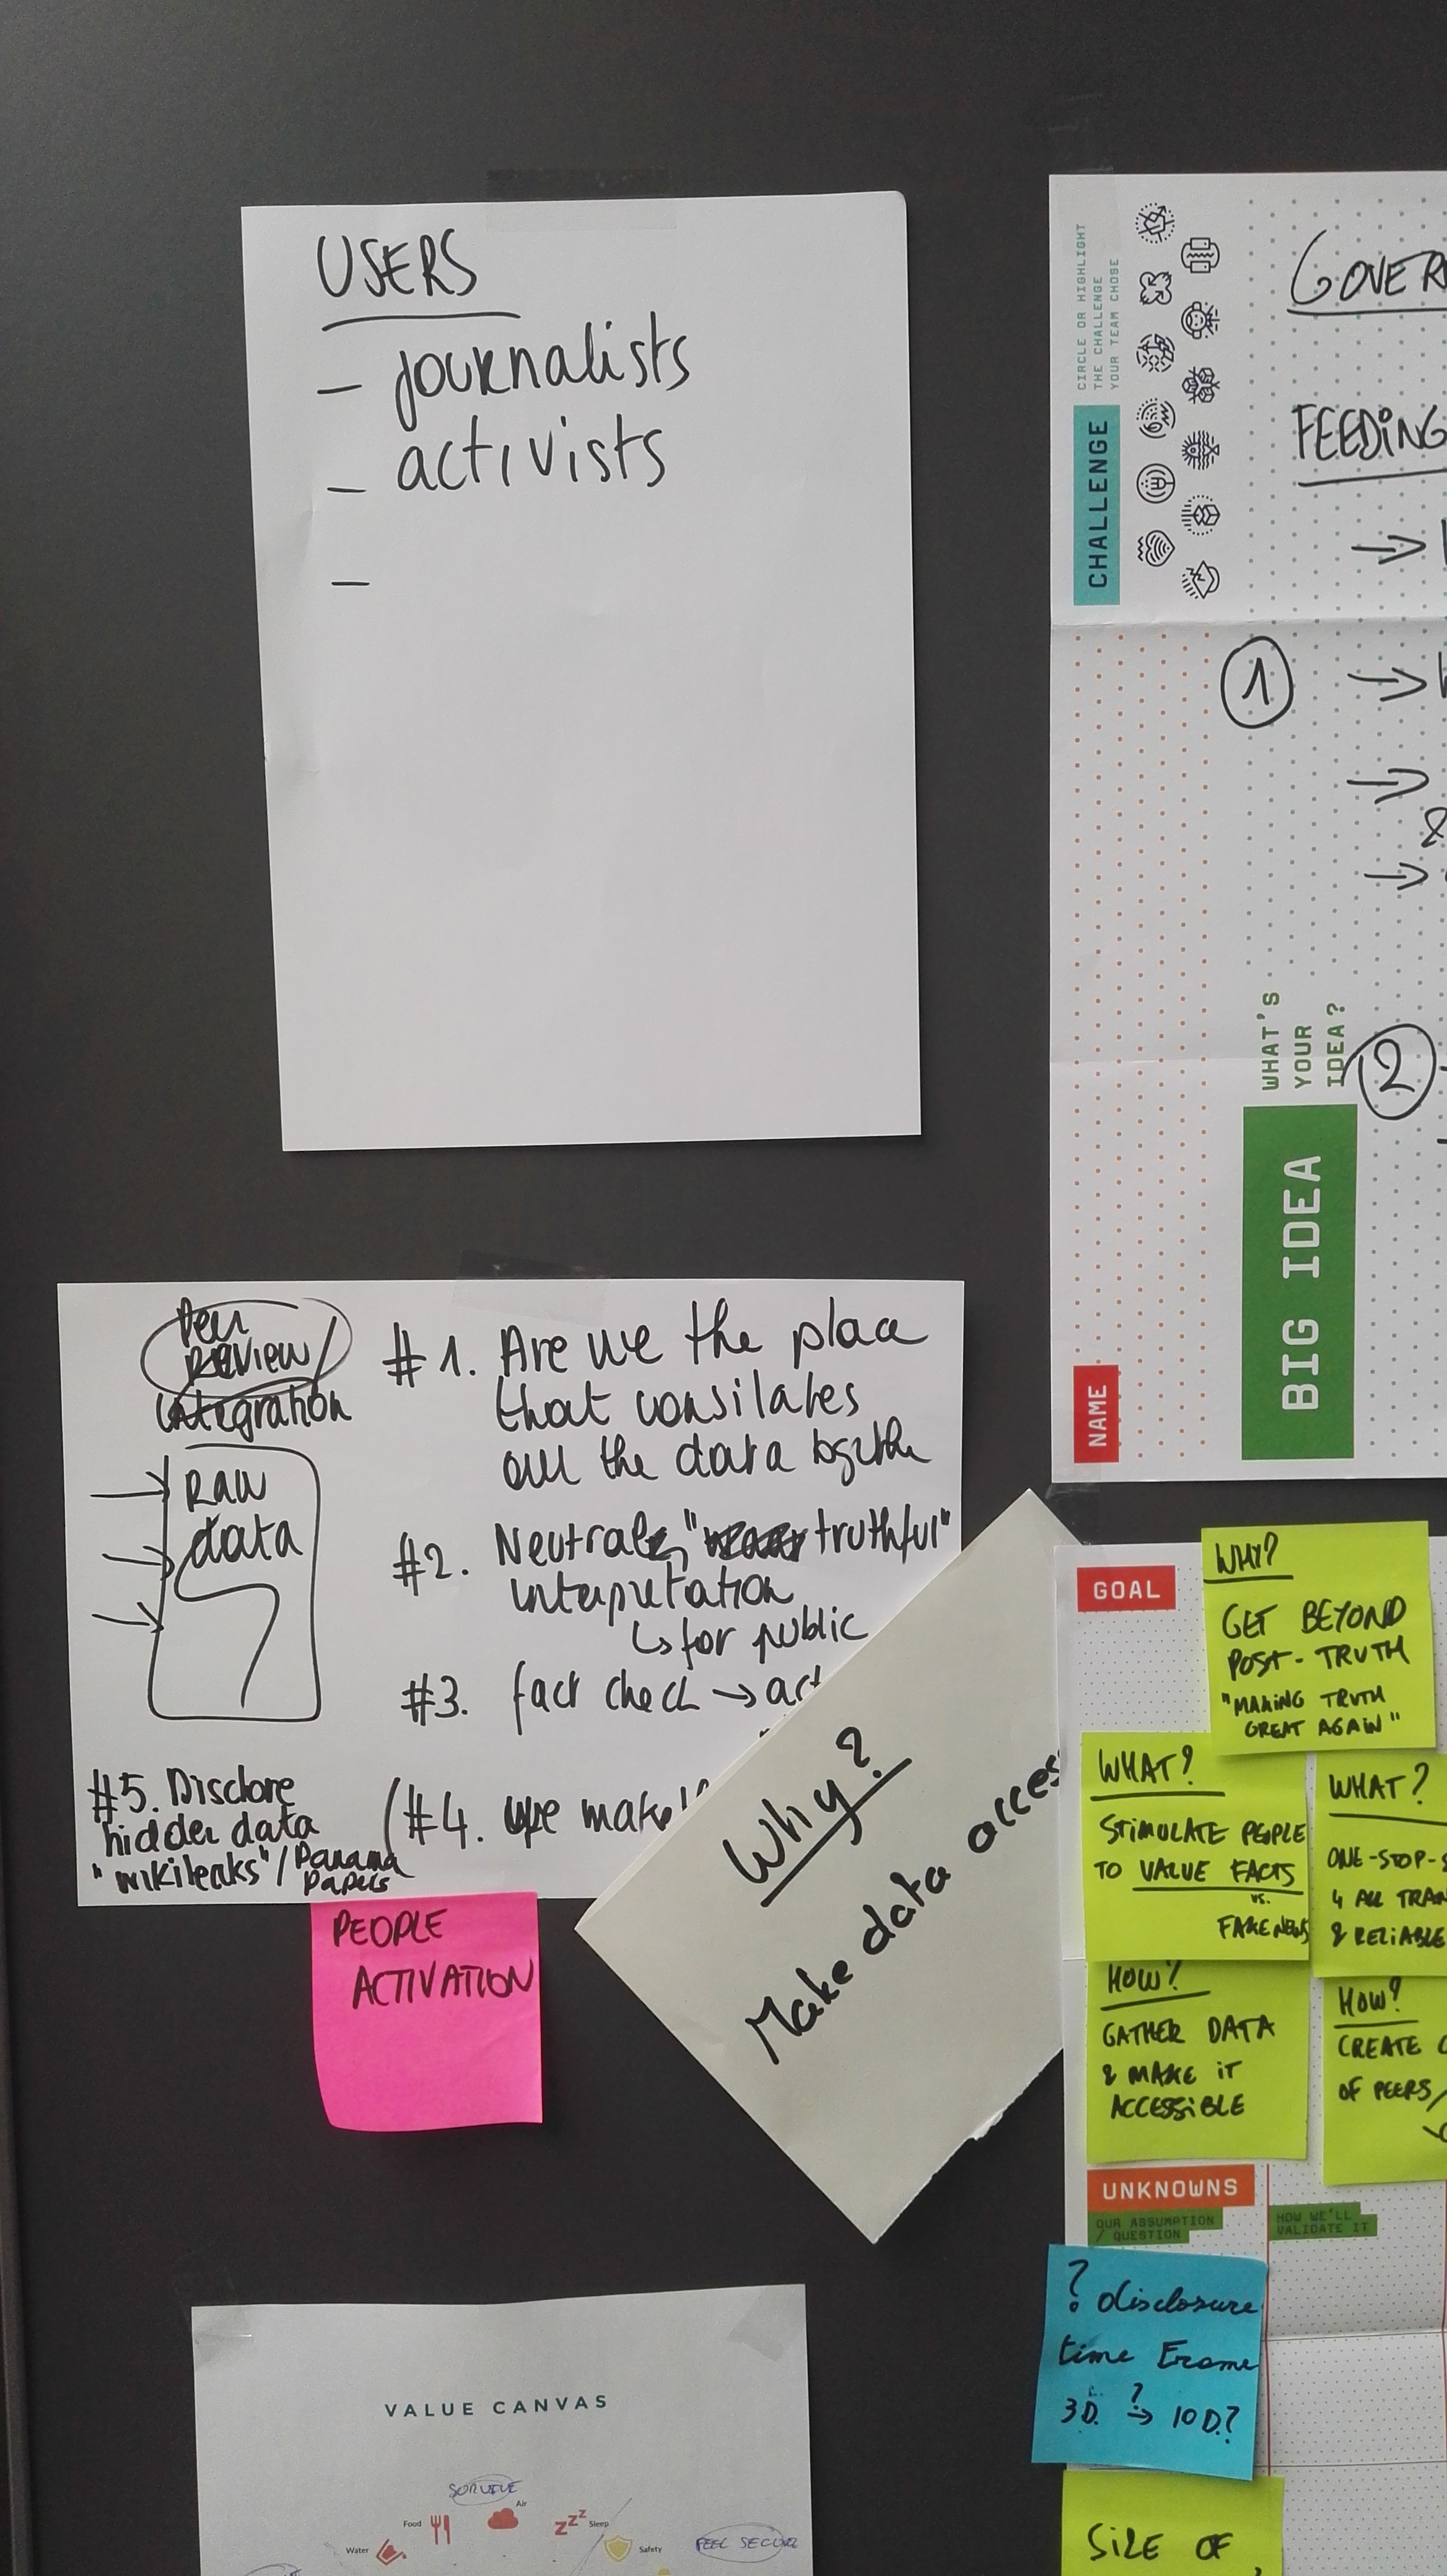 USERS
– journalists
– activists
–
CIRCLE OR HIGHLIGHT
THE CHALLENGE
YOUR TEAM CHOSE
CHALLENGE
GOVER
FEEDING
→
1 →
→
&
→
WHAT'S
YOUR
IDEA?
2
BIG IDEA
NAME
Peer
REVIEW/
integration
RAW
data
#1. Are we the place
that consilates
all the data together
#2. Neutral, "truthful"
interpretation
↳ for public
#3. fact check → act
(#4. we make
#5. Disclore
hidden data
"wikileaks"/Panama
Papers
PEOPLE
ACTIVATION
Why?
Make data acces
GOAL
WHY?
GET BEYOND
POST-TRUTH
"MAKING TRUTH
GREAT AGAIN"
WHAT?
STIMULATE PEOPLE
TO VALUE FACTS
vs.
FAKE NEWS
WHAT?
ONE-STOP-S
4 ALL TRAN
& RELIABLE
HOW?
GATHER DATA
& MAKE IT
ACCESSIBLE
HOW?
CREATE C
OF PEERS/
UNKNOWNS
OUR ASSUMPTION
/ QUESTION
HOW WE'LL
VALIDATE IT
? disclosure
time Frame
3D. ?→ 10D.?
SIZE OF
VALUE CANVAS
SURVIVE
Air
Food
Sleep
zzz
Water
Safety
FEEL SECURE